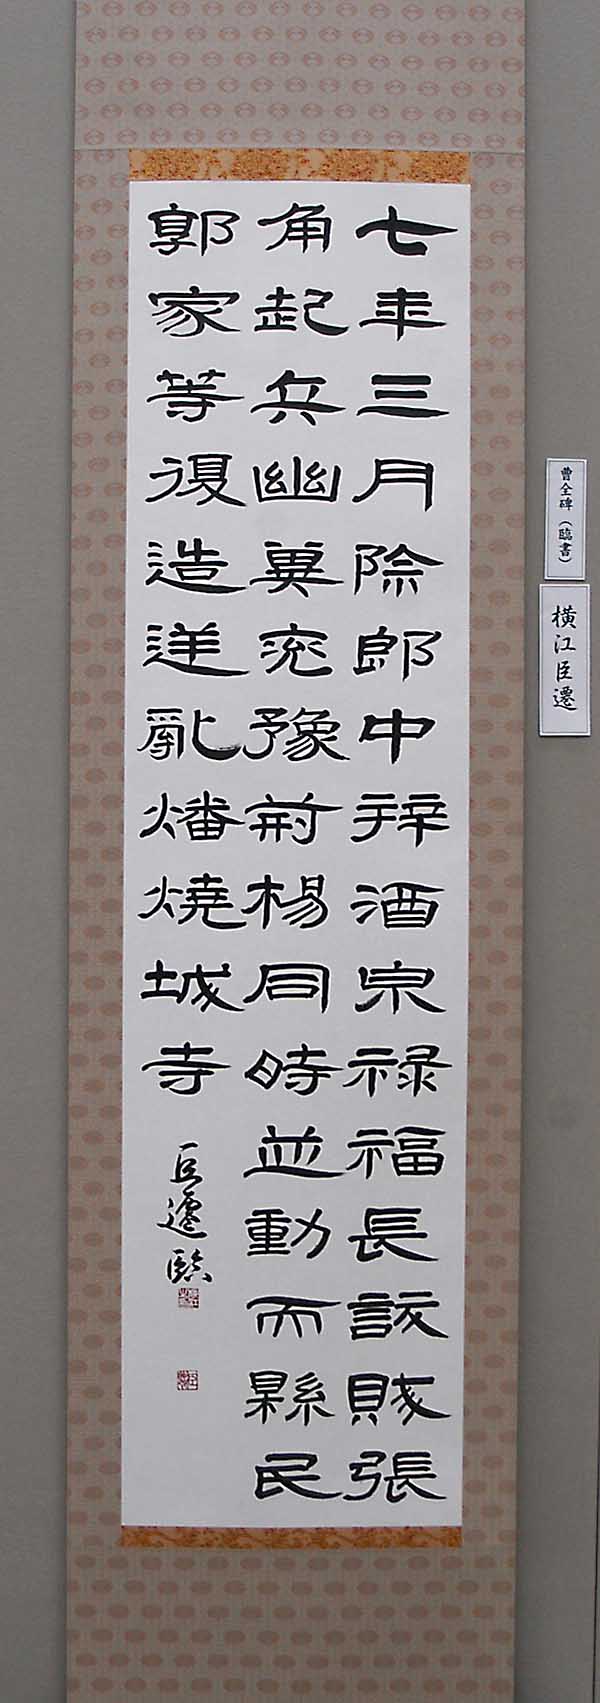 七年三月除郎中拝酒泉禄福長訞賊張
角起兵幽冀兗豫荊楊同時並動而縣民
郭家等復造逆亂燔燒城寺
臣遷臨
曹全碑（臨書）
横江臣遷